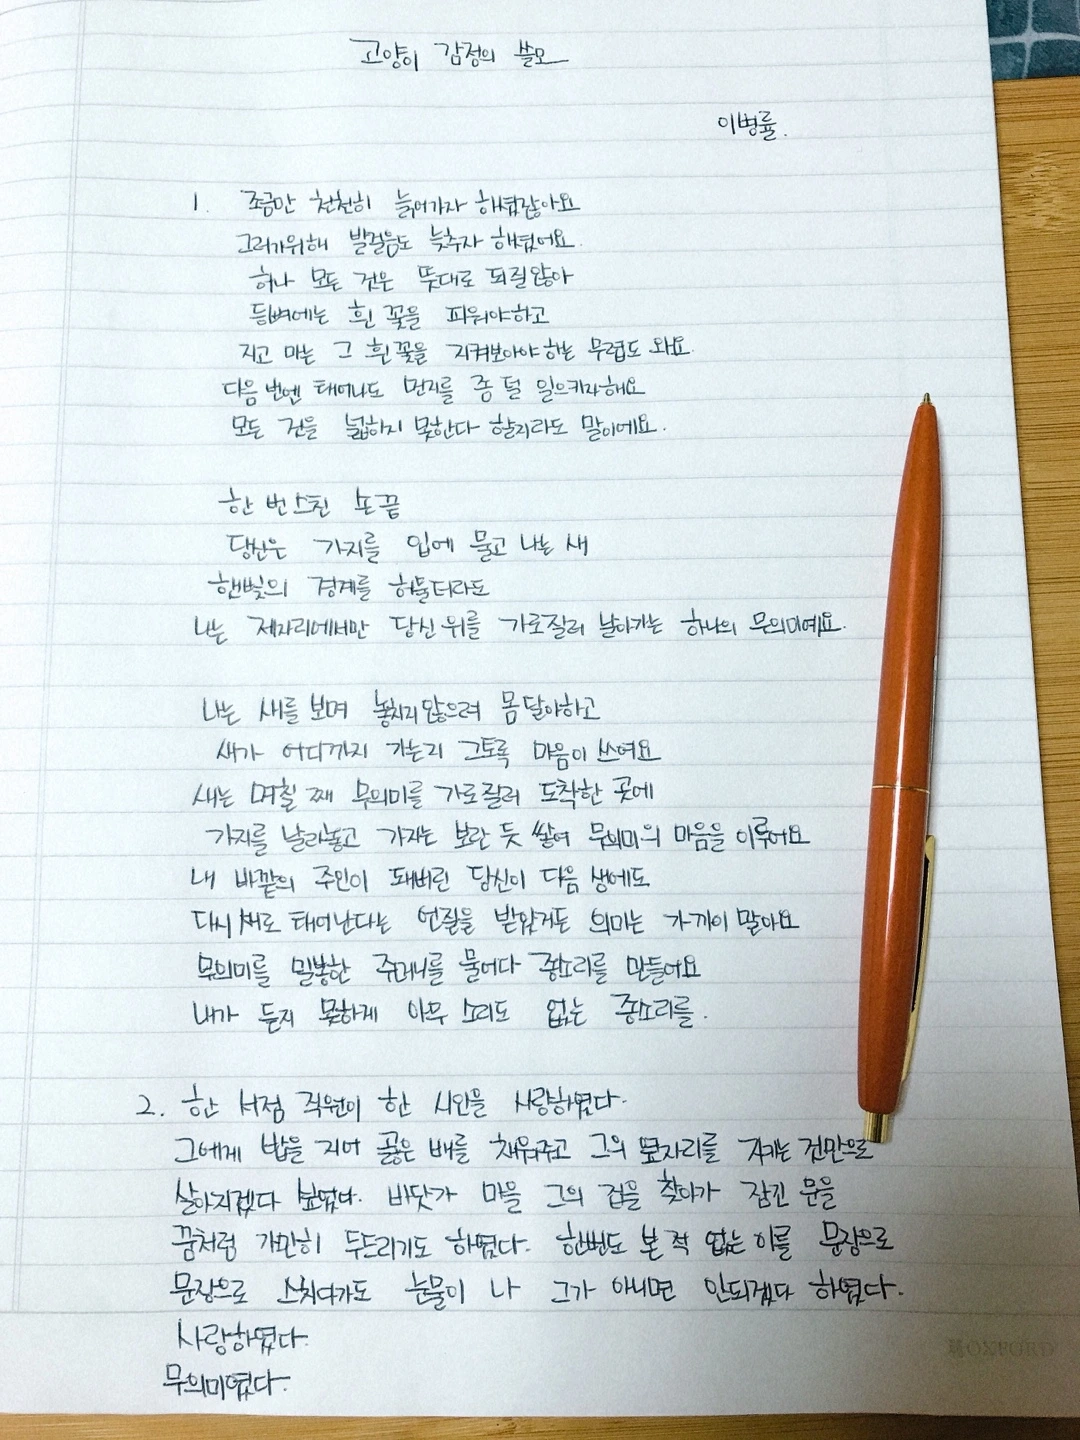 고양이 감정의 쓸모
이병률.
1. 조금만 천천히 늙어가자 하였잖아요
그러기위해 발걸음도 늦추자 하였어요.
허나 모든 것은 뜻대로 되질않아
등뼈에는 흰 꽃을 피워야하고
지고 마는 그 흰꽃을 지켜보아야하는 무렵도 와요.
다음번엔 태어나도 먼지를 좀 덜 일으키자해요
모든 것을 넓히지 못한다 할지라도 말이에요.
한 번 스친 손끝
당신은 가지를 입에 물고 나는 새
햇빛의 경계를 허물더라도
나는 제자리에서만 당신 위를 가로질러 날아가는 하나의 무의미예요.
나는 새를 보며 놓치지않으려 몸달아하고
새가 어디까지 가는지 그토록 마음이 쓰여요
새는 며칠 째 무의미를 가로질러 도착한 곳에
가지를 날라놓고 가지는 보란 듯 쌓여 무의미의 마음을 이루어요
내 바깥의 주인이 돼버린 당신이 다음 생에도
다시 새로 태어난다는 언질을 받았거든 의미는 가까이 말아요
무의미를 밀봉한 주머니를 물어다 종소리를 만들어요
내가 듣지 못하게 아무 소리도 없는 종소리를.
2. 한 서점 직원이 한 시인을 사랑하였다.
그에게 밥을 지어 곯은 배를 채워주고 그의 옆자리를 지키는 것만으로
살아지겠다 싶었다. 바닷가 마을 그의 집을 찾아가 잠긴 문을
꿈처럼 가만히 두드리기도 하였다. 한번도 본 적 없는 이를 문장으로
문장으로 스치다가도 눈물이 나 그가 아니면 안되겠다 하였다.
사랑하였다.
무의미였다.
OXFORD